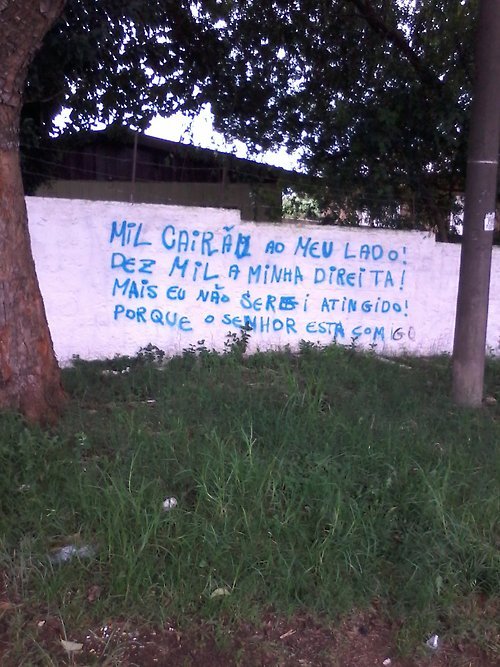 MIL CAIRÃO AO MEU LADO!
DEZ MIL A MINHA DIREITA!
MAIS EU NÃO SEREI ATINGIDO!
PORQUE O SENHOR ESTA COMIGO